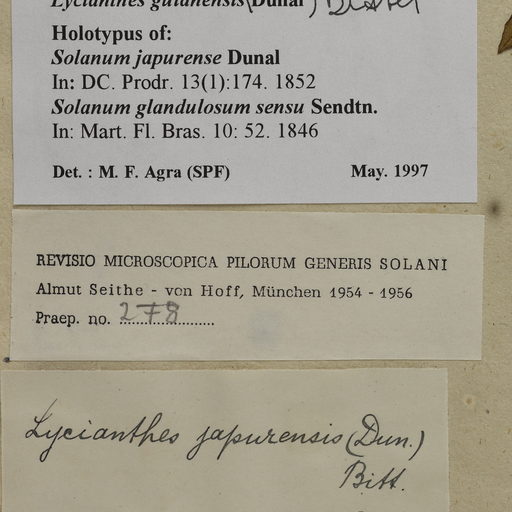 Lycianthes guianensis (Dunal) Bitter
Holotypus of:
Solanum japurense Dunal
In: DC. Prodr. 13(1):174. 1852
Solanum glandulosum sensu Sendtn.
In: Mart. Fl. Bras. 10: 52. 1846
Det. : M. F. Agra (SPF) May. 1997
REVISIO MICROSCOPICA PILORUM GENERIS SOLANI
Almut Seithe - von Hoff, München 1954 - 1956
Praep. no. 278
Lycianthes japurensis (Dun.)
Bitt.